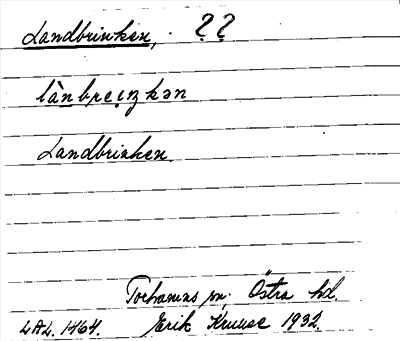 Landbrinken, ??
lànbreiŋkən
Landbrinken
Torhamns sn. Östra hd.
LAL. 1464. Erik Kruuse 1932.